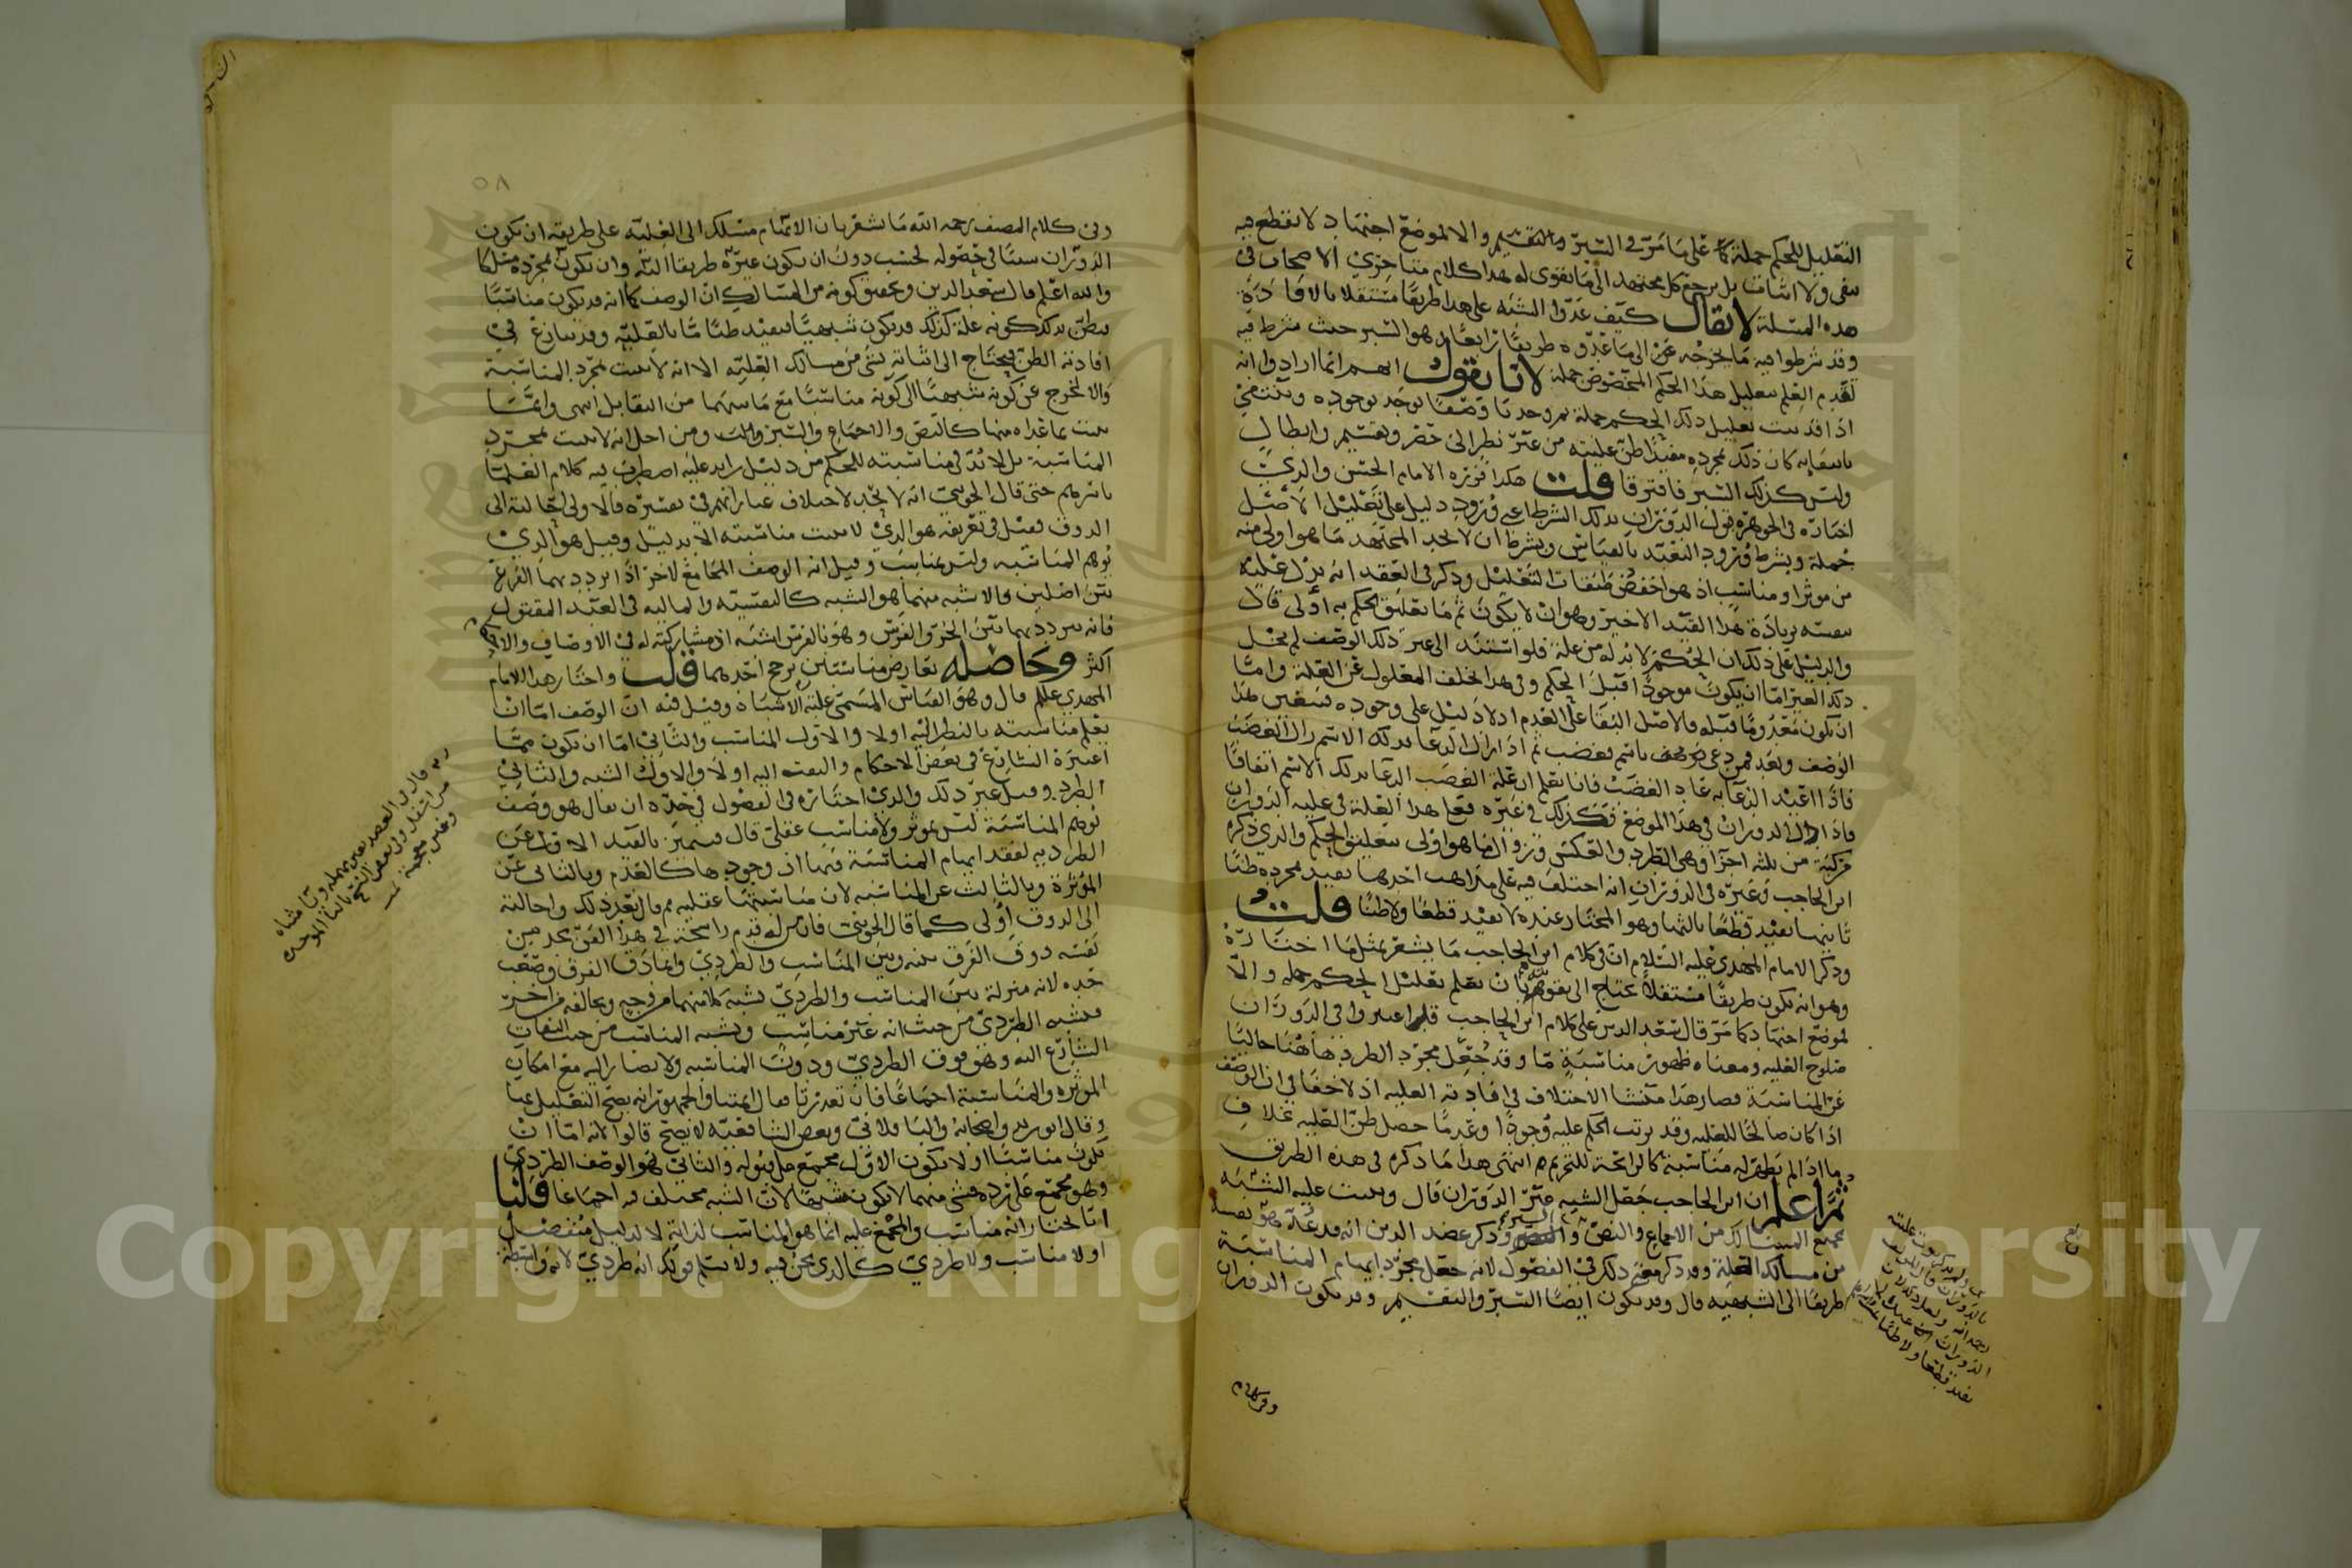 التعليل للحكم جملة كما على ما مر في السبر والتقسيم والا لموضع اجتهاد لا نقطع فيه
بنفي ولا اثبات بل يرجع كل مجتهد الى ما يقوى له هذا كلام متأخري الاصحاب في
هذه المسئلة لا يقال كيف عدوا الشبه على هذا طريقا مستقلا بالافادة
وقد شرطوا فيه ما يخرجه عن الى ما عدوه طريقا رابعا وهو السبر حيث شرط فيه
تقدم العلم بتعليل هذا الحكم المخصوص جملة لانا نقول انهم انما ارادوا انه
اذا قد ثبت تعليل ذلك الحكم جملة ثم وجدنا وصفا يوجد بوجوده وينتفي
بانتفائه كان ذلك بمجرده مفيدا ظن عليته من غير نظر الى حصر وتقسيم وابطال
وليس كذلك السبر فافترقا قلت هكذا قرره الامام الحسن والذي
اختاره في الجوهرة قول الدوران بذلك الشرط اعني ورود دليل على تعليل الاصل
جملة وبشرط ورود التعبد بالقياس وبشرط ان لا يجد المجتهد ما هو اولى منه
من موثر او مناسب اذ هو اخفض طبقات التعليل وذكر في العقد انه يدل على
بزيادة هذا القيد الاخير وهو ان لا يكون ثم ما تعليق الحكم به اولى قال
والدليل على ذلك ان الحكم لا بد له من علة فلو استند الى غير ذلك الوصف لم يخل
ذلك الغير اما ان يكون موجودا قبل الحكم وفي هذا تخلف المعلول عن العلة واما
ان يكون معدوما قبله والاصل البقا على العدم اذ لا دليل على وجوده فتعين هذا
الوصف وبعد فمن دعي باسم فغضب ثم اذا زال الدعا بذلك الاسم زال الغضب
فاذا اعيد الدعا به عاد الغضب فانا نعلم ان علة الغضب الدعا بذلك الاسم اتفاقا
فاذا الدوران في هذا الموضع فكذلك في غيره فعلى هذا العلة في علية الدوران
مركبة من ثلثة اجزا وهي الطرد والعكس وزوال ما هو اولى بتعليق الحكم والذي ذكره
ابن الحاجب وغيره في الدوران انه اختلف فيه على مذاهب احدها يفيد بمجرده ظنا
ثانيها يفيد قطعا ثالثها وهو المختار عنده لا يفيد قطعا ولا ظنا قلت
وذكر الامام المهدي عليه السلام ان في كلام ابن الحاجب ما يشعر بمثل ما اختاره
وهو انه يكون طريقا مستقلا يحتاج الى بان نعلم تعليل الحكم جملة والا
لموضع اجتهاد كما مر قال سعد الدين على كلام ابن الحاجب قد اعتبروا في الدوران
صلوح العلية ومعناه ظهور مناسبة ما وقد جعل مجرد الطرد هاهنا خاليا
عن المناسبة فصار هذا منشا الاختلاف في افادته العلية اذ لا خفا في ان الوصف
اذا كان صالحا للعلية وقد ترتب الحكم عليه وجودا وعدما حصل ظن العلية بخلاف
ما اذا لم يظهر له مناسبة كالرائحة للتحريم انتهى هذا ما ذكره في هذه الطريق
ثم اعلم ان ابن الحاجب جعل الشبه غير الدوران قال ويثبت عليه الشبه
بجميع المسالك من الاجماع والنص والسبر وذكر عضد الدين انه قد عده هو بعينه
من مسالك العلة وقد ذكر معنى ذلك في الفصول لانه جعل مجرد ايهام المناسبة
طريقا الى الشبهية قال وقد يكون ايضا السبر والتقسيم وقد يكون الدوران
وفي كلام
الدوران
يفيد قطعا ولا ظنا
٥٨
وفي كلام المصنف رحمه الله ما يشعر بان الايهام مسلك الى العلية على طريقه ان يكون
الدوران سببا في حصوله لحسب دون ان يكون غيره طريقا اليه وان يكون بمجرده مسلكا
والله اعلم قال سعد الدين وتحقيق كونه من المسالك ان الوصف كما انه قد يكون مناسبا
فيظن بذلك كونه علة كذلك قد يكون شبهيا فيفيد ظنا ما بالعلية وقد ينازع في
افادته الظن فيحتاج الى اثباته بشي من مسالك العلية الا انه لا يثبت بمجرد المناسبة
والا لخرج عن كونه شبهيا الى كونه مناسبا مع ما بينهما من التقابل انتهى وانما
يثبت بما عداه منها كالنص والاجماع والسبر ومن اجل انه لا يثبت بمجرد
المناسبة بل لا بد في مناسبته للحكم من دليل زايد عليه اضطرب فيه كلام العلما
باسرهم حتى قال الجويني انه لا يحد لاختلاف عباراتهم في تفسيره فالاولى احالته الى
الذوق فقيل في تعريفه هو الذي لا يثبت مناسبته الا بدليل وقيل هو الذي
يوهم المناسبه وليس بمناسب وقيل انه الوصف الجامع لاخر اذا تردد بهما الفرع
بين اصلين والاشبه منهما هو الشبه كالنفسية والمالية في العبد المقتول
فانه تردد بهما بين الحر والفرس وهو بالفرس اشبه اذ مشاركته له في الاوصاف والاحكام
اكثر وحاصله تعارض مناسبتين ترجح احدهما قلت واختار هذا الامام
المهدي علم قال وهو القياس المسمى علية الاشباه وقيل فيه ان الوصف اما ان
نعلم مناسبته بالنظر اليه اولا والاول المناسب والثاني اما ان يكون مما
اعتبره الشارع في بعض الاحكام والتفت اليه اولا والاول الشبه والثاني
الطرد وقيل غير ذلك والذي اختاره في الفصول في حده ان يقال هو وصف
توهم المناسبة ليس بموثر ولا مناسب عقلي قال فيتميز بالقيد الاول عن
الطرديه لفقد ايهام المناسبة فيها اذ وجودها كالعدم وبالثاني عن
المؤثرة وبالثالث عن المناسبه لان مناسبتها عقليه ثم قال بعد ذلك واحالته
الى الذوق اولى كما قال الجويني فان من له قدم راسخة في هذا الفن يجد من
نفسه ذوق الفرق بينه وبين المناسب والطردي وانما دق الفرق وصعب
حده لانه منزلة بين المناسب والطردي تشبه كلا منهما من وجه ويخالفه من اخر
فيشبه الطردي من حيث انه غير مناسب ويشبه المناسب من حيث التفات
الشارع اليه وهو فوق الطردي ودون المناسبه ولا يصار اليه مع امكان
الموثره والمناسبة اجماعا فان تعذرتا فقال ايمتنا والجمهور انه يصح التعليل بها
وقال ابو زيد واصحابه والباقلاني وبعض الشافعيه لا يصح قالوا لانه اما ان
يكون مناسبا او لا يكون الاول مجمع على قبوله والثاني فهو الوصف الطردي
وهو مجمع على رده فشي منهما لا يكون مشبها لان الشبه مختلف فيه اجماعا قلنا
انا نختار انه مناسب والمجمع عليه انما هو المناسب لذاته لا لدليل منفصل
او لا مناسب ولا طردي كالذي نحن فيه ولا نسلم قولك انه طردي لانه واسطة
Copyright © King Saud University